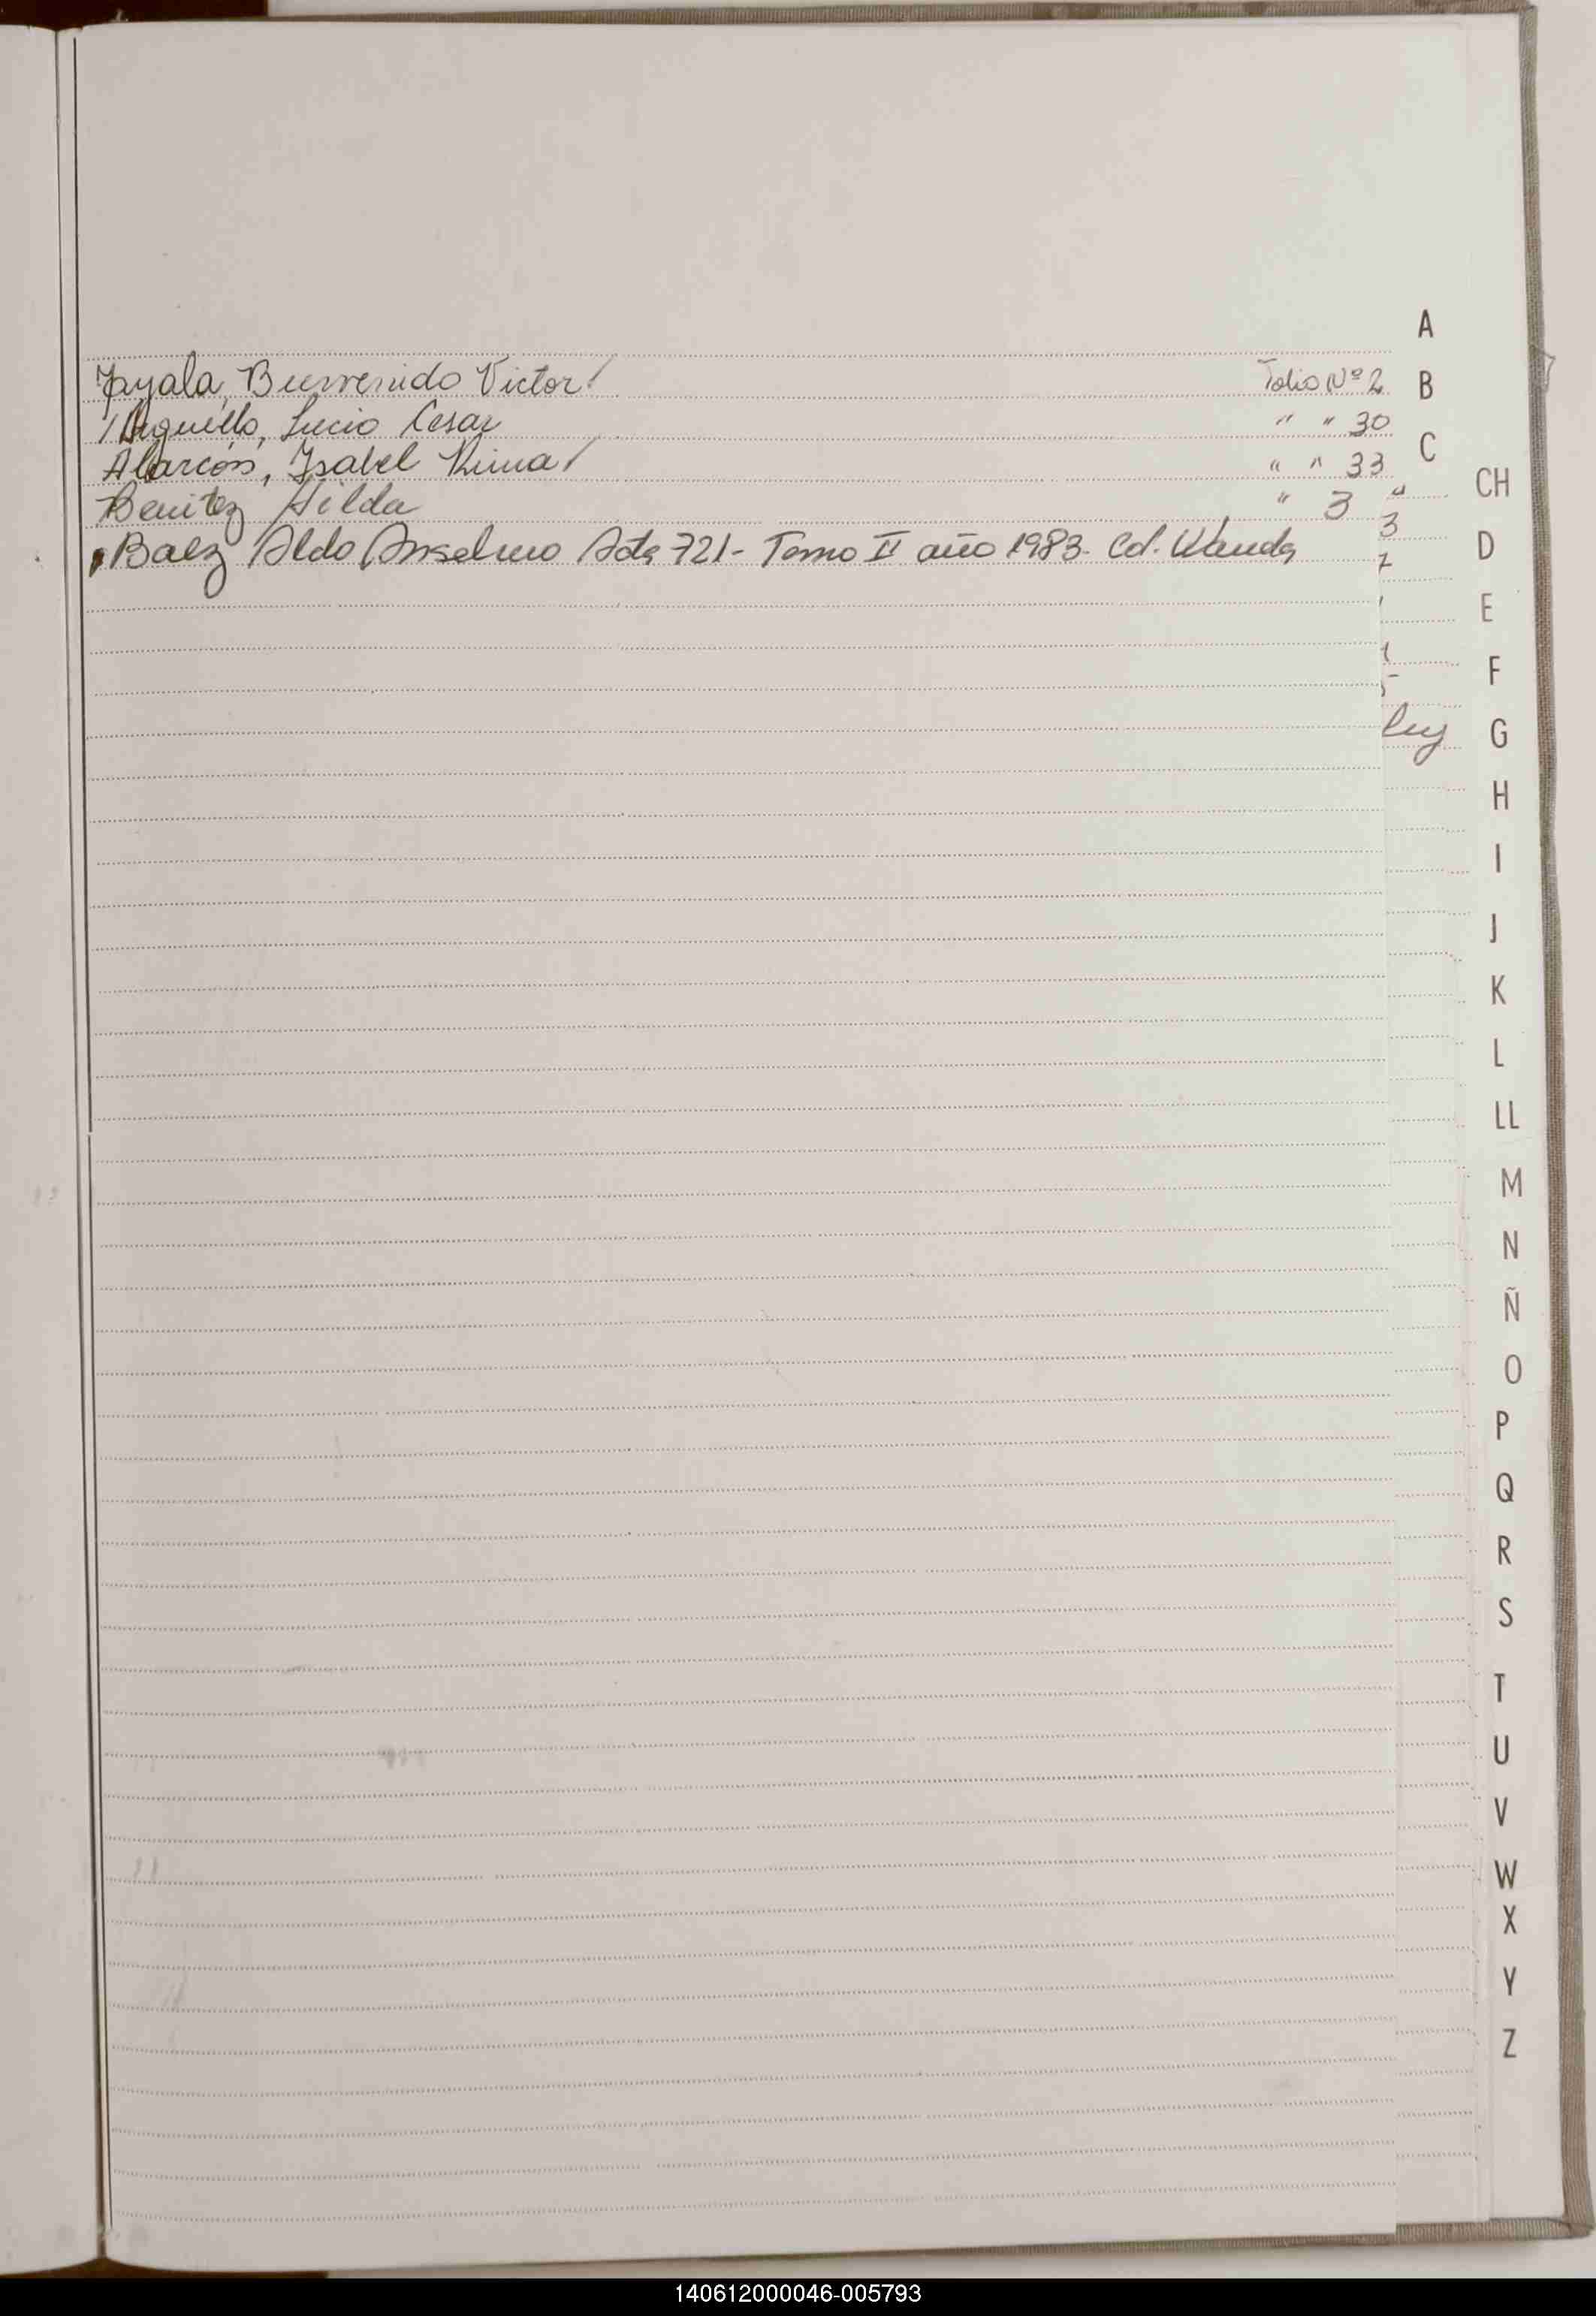 Ayala, Bienvenido Victor/ Folio Nº 2
/ Arguello, Lucio Cesar " " 30
Alarcón, Isabel Nima/ " " 33
Benitez Hilda " 3 "
Baez Aldo Anselmo Acta 721- Tomo II año 1983. Col. Wanda
3
7
ley
A
B
C
CH
D
E
F
G
H
I
J
K
L
LL
M
N
Ñ
O
P
Q
R
S
T
U
V
W
X
Y
Z
140612000046-005793